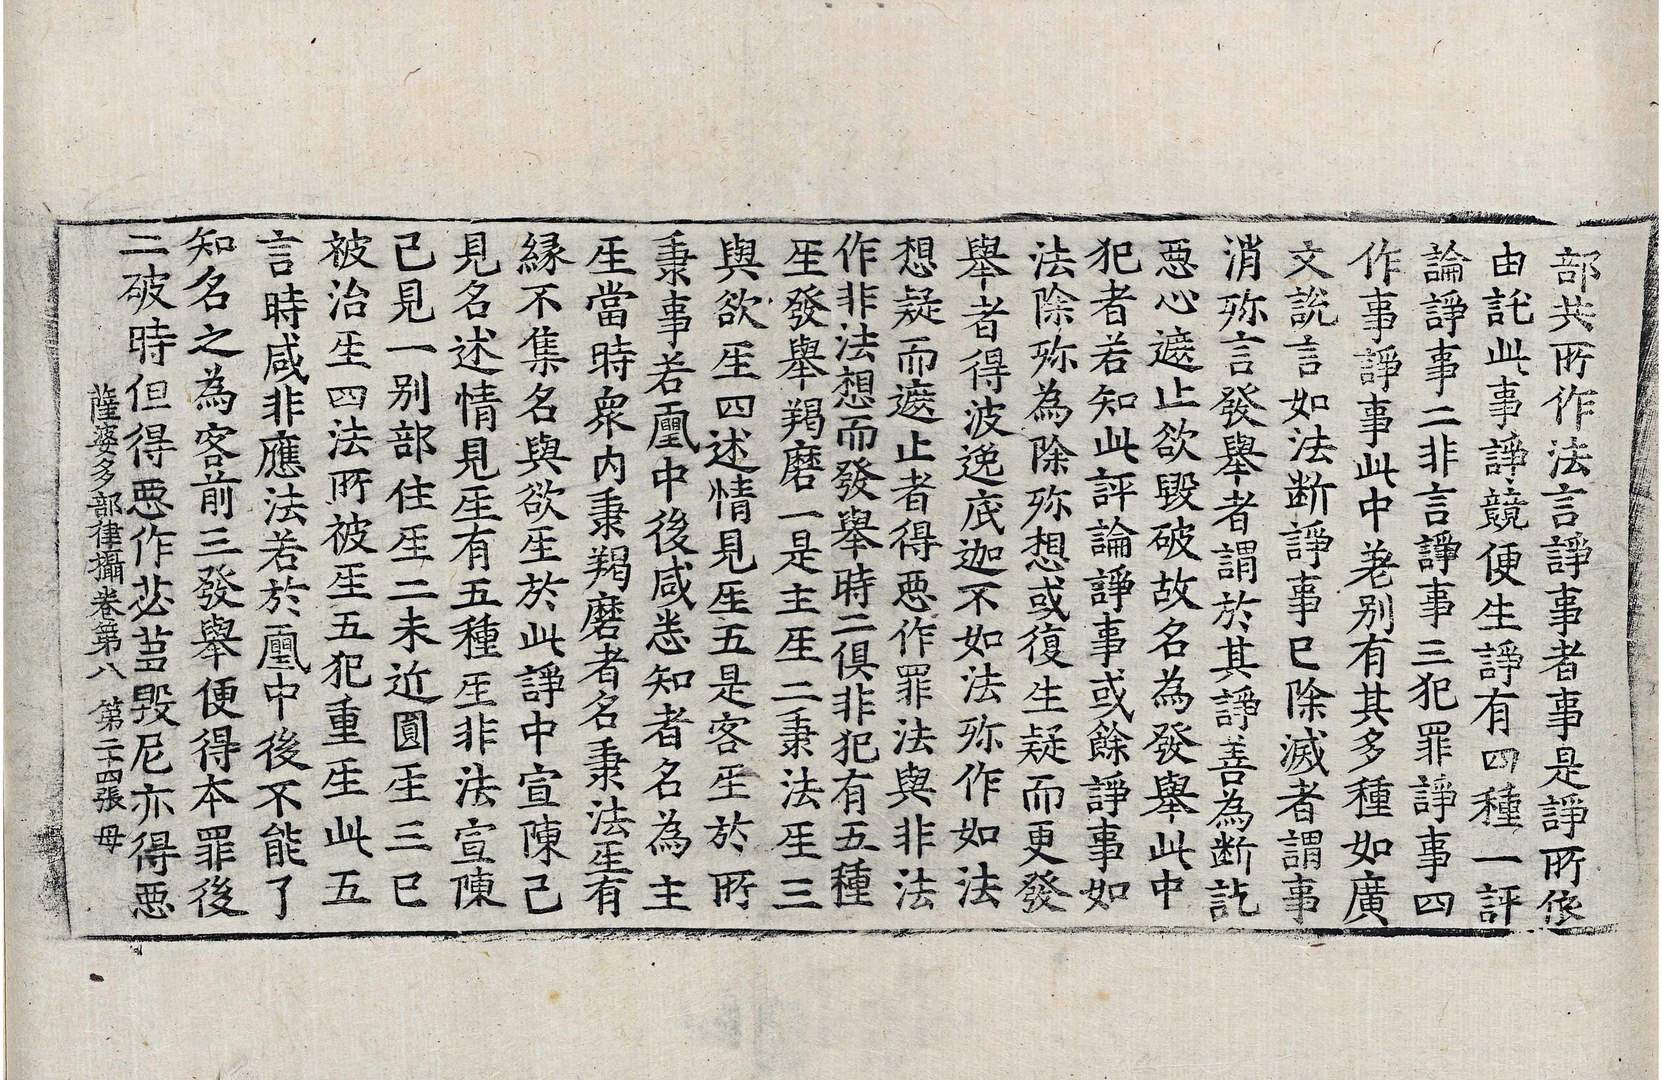 部共所作法言諍事者事是諍所依
由託此事諍競便生諍有四種一評
論諍事二非言諍事三犯罪諍事四
作事諍事此中差别有其多種如廣
文說言如法断諍事已除滅者謂事
消殄言發舉者謂於其諍善為断訖
惡心遮止欲毀破故名為發舉此中
犯者若知此評論諍事或餘諍事如
法除殄為除殄想或復生疑而更發
舉者得波逸底迦不如法殄作如法
想疑而遮止者得惡作罪法與非法
作非法想而發舉時二俱非犯有五種
𤯔發舉羯磨一是主𤯔二秉法𤯔三
與欲𤯔四述情見𤯔五是客𤯔於所
秉事若𤯔中後咸悉知者名為主
𤯔當時衆内秉羯磨者名秉法𤯔有
縁不集名與欲𤯔於此諍中宣陳己
見名述情見𤯔有五種𤯔非法宣陳
己見一别部住𤯔二未近圓𤯔三已
被治𤯔四法所被𤯔五犯重𤯔此五
言時咸非應法若於𤯔中後不能了
知名之為客前三發舉便得本罪後
二破時但得惡作苾蒭毀尼亦得惡
薩婆多部律攝卷第八 第二十四張 母